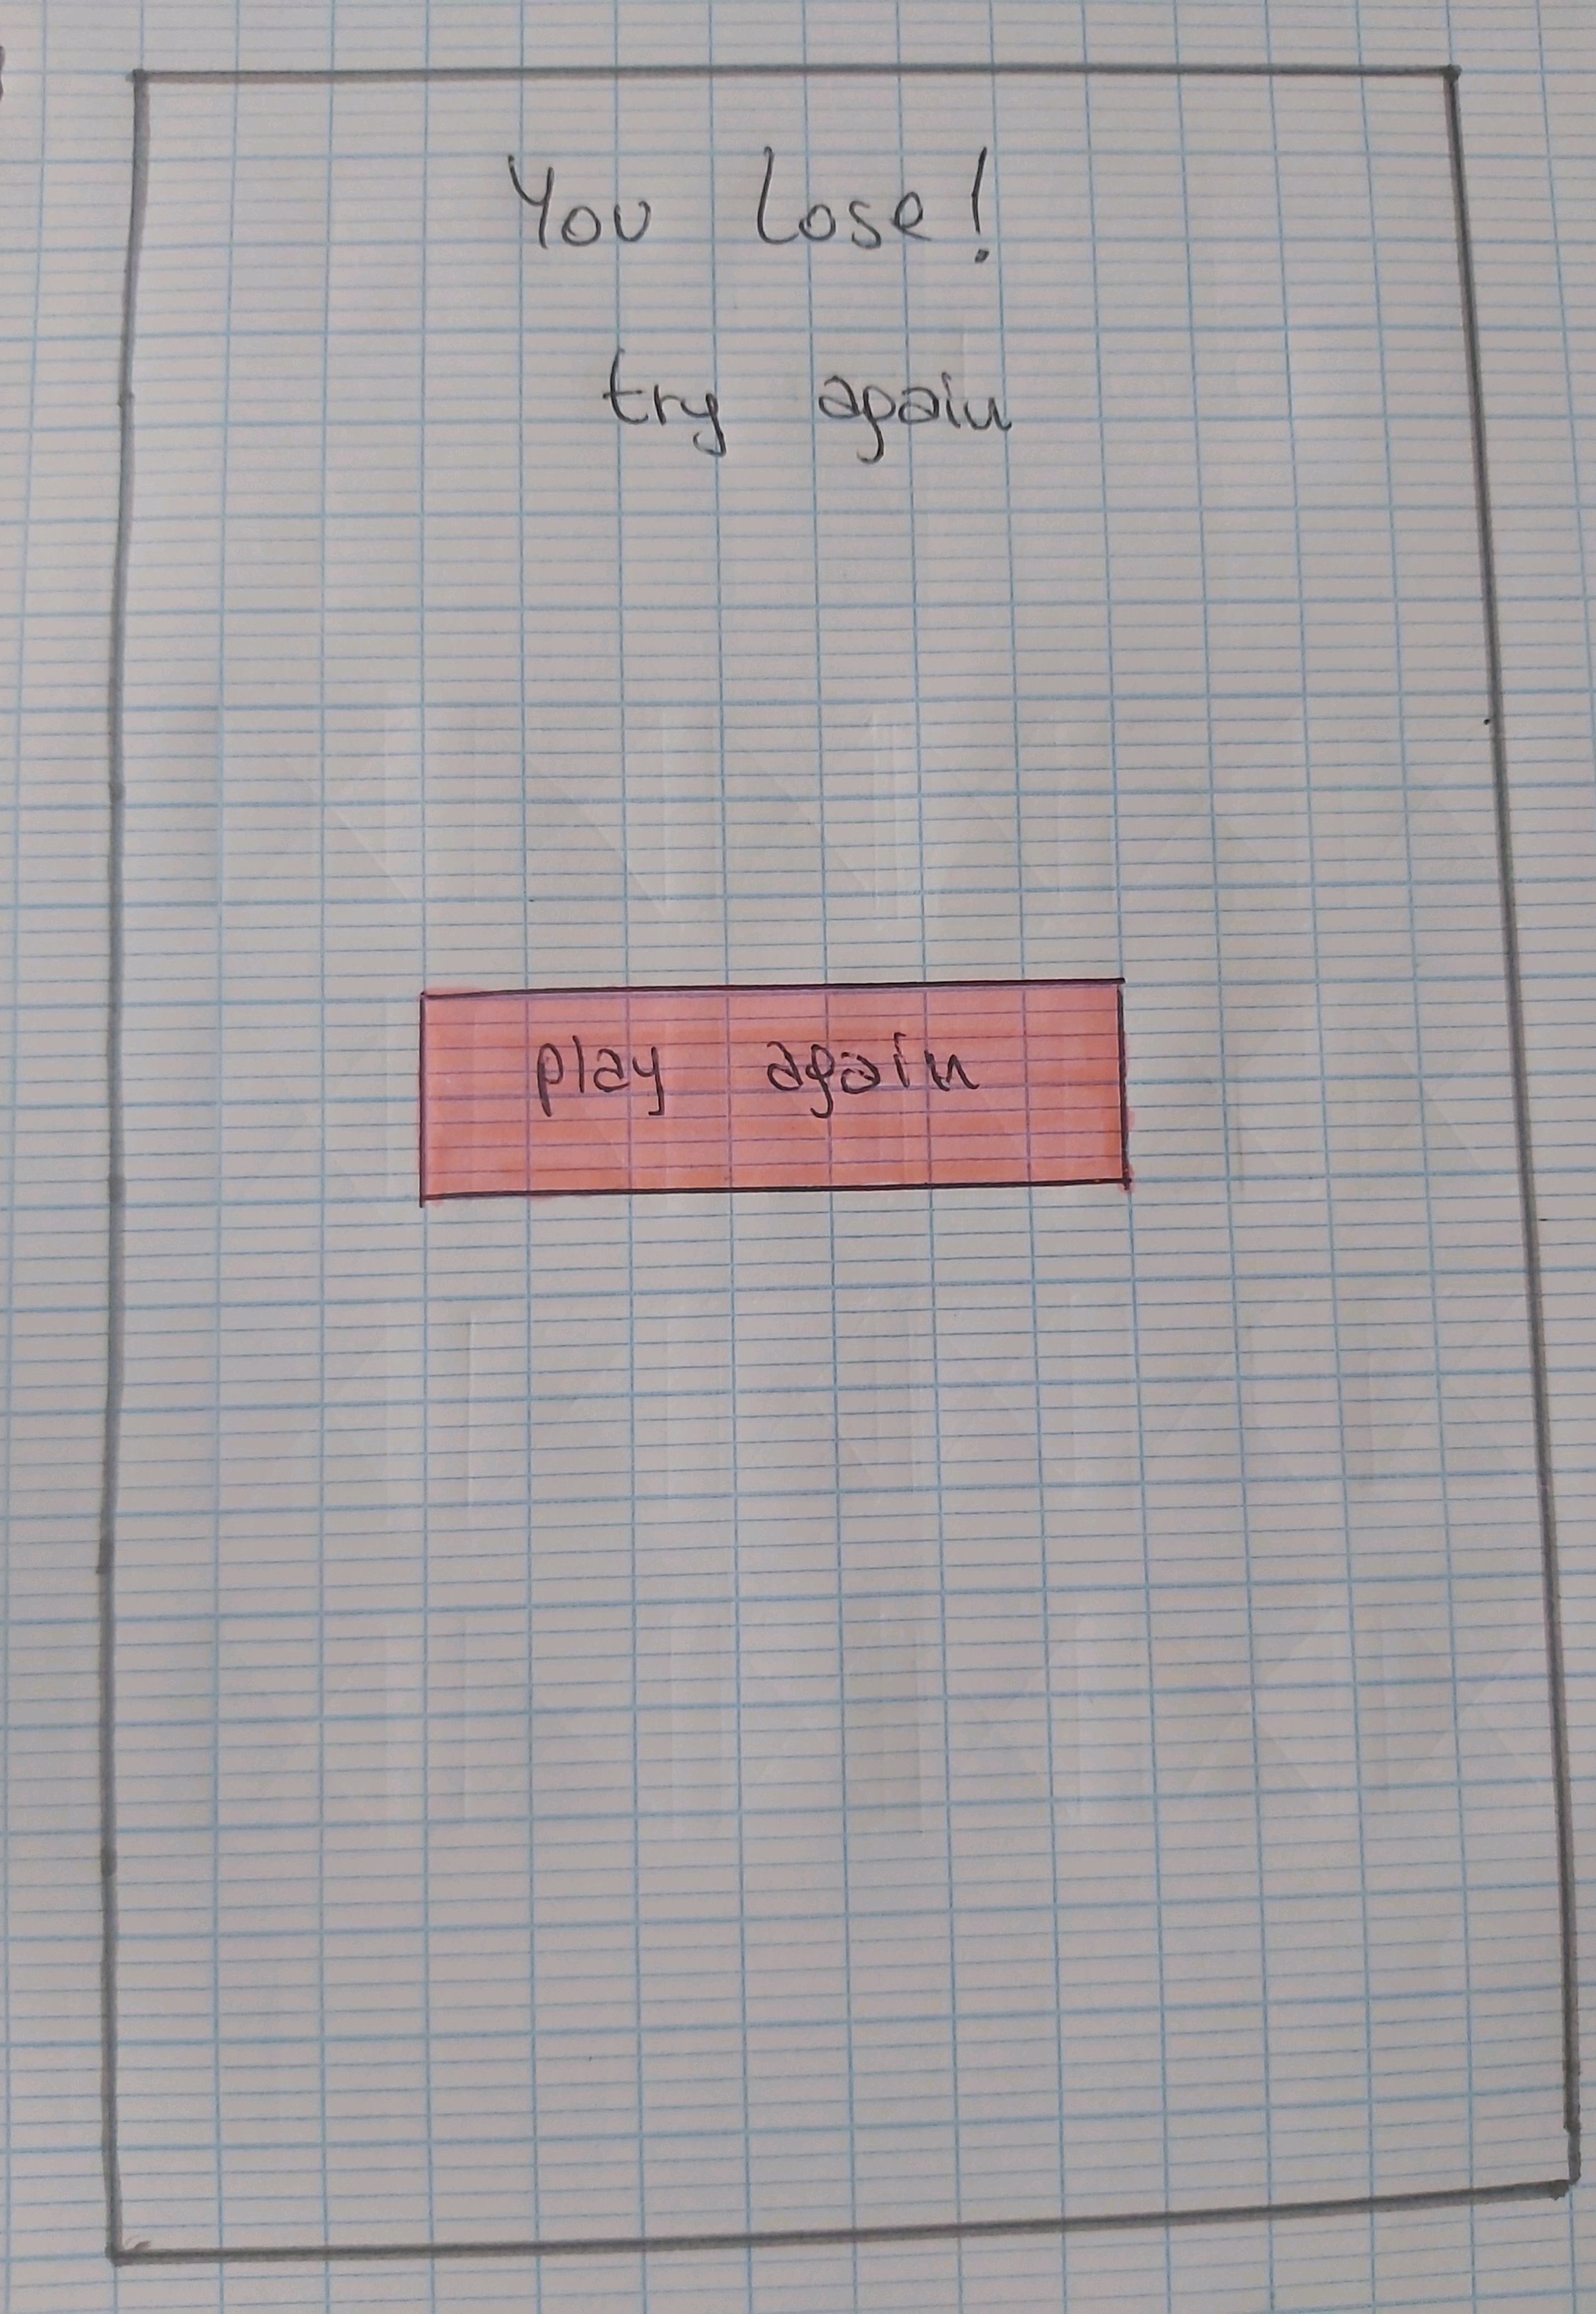 You lose!
try again
play again